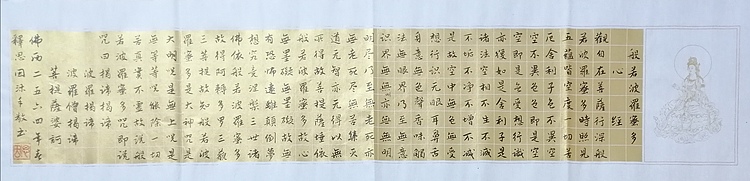 般若波羅蜜多
心經
觀自在菩薩行深般
若波羅蜜多時照見
五蘊皆空度一切苦
厄舍利子色不異空
空不異色色即是空
空即是色受想行識
亦復如是舍利子是
諸法空相不生不滅
不垢不淨不增不減
是故空中無色無受
想行識無眼耳鼻舌
身意無色聲香味觸
法無眼界乃至無意
識界無無明亦無無
明盡乃至無老死亦
無老死盡無苦集滅
道無智亦無得以無
所得故菩提薩埵依
般若波羅蜜多故心
無罣礙無罣礙故無
有恐怖遠離顛倒夢
想究竟涅槃三世諸
佛依般若波羅蜜多
故得阿耨多羅三藐
三菩提故知般若波
羅蜜多是大神咒是
大明咒是無上咒是
無等等咒能除一切
苦真實不虛故說般
若波羅蜜多咒即說
咒曰揭諦揭諦
波羅揭諦
波羅僧揭諦
菩提薩婆訶
二五六四年
釋思